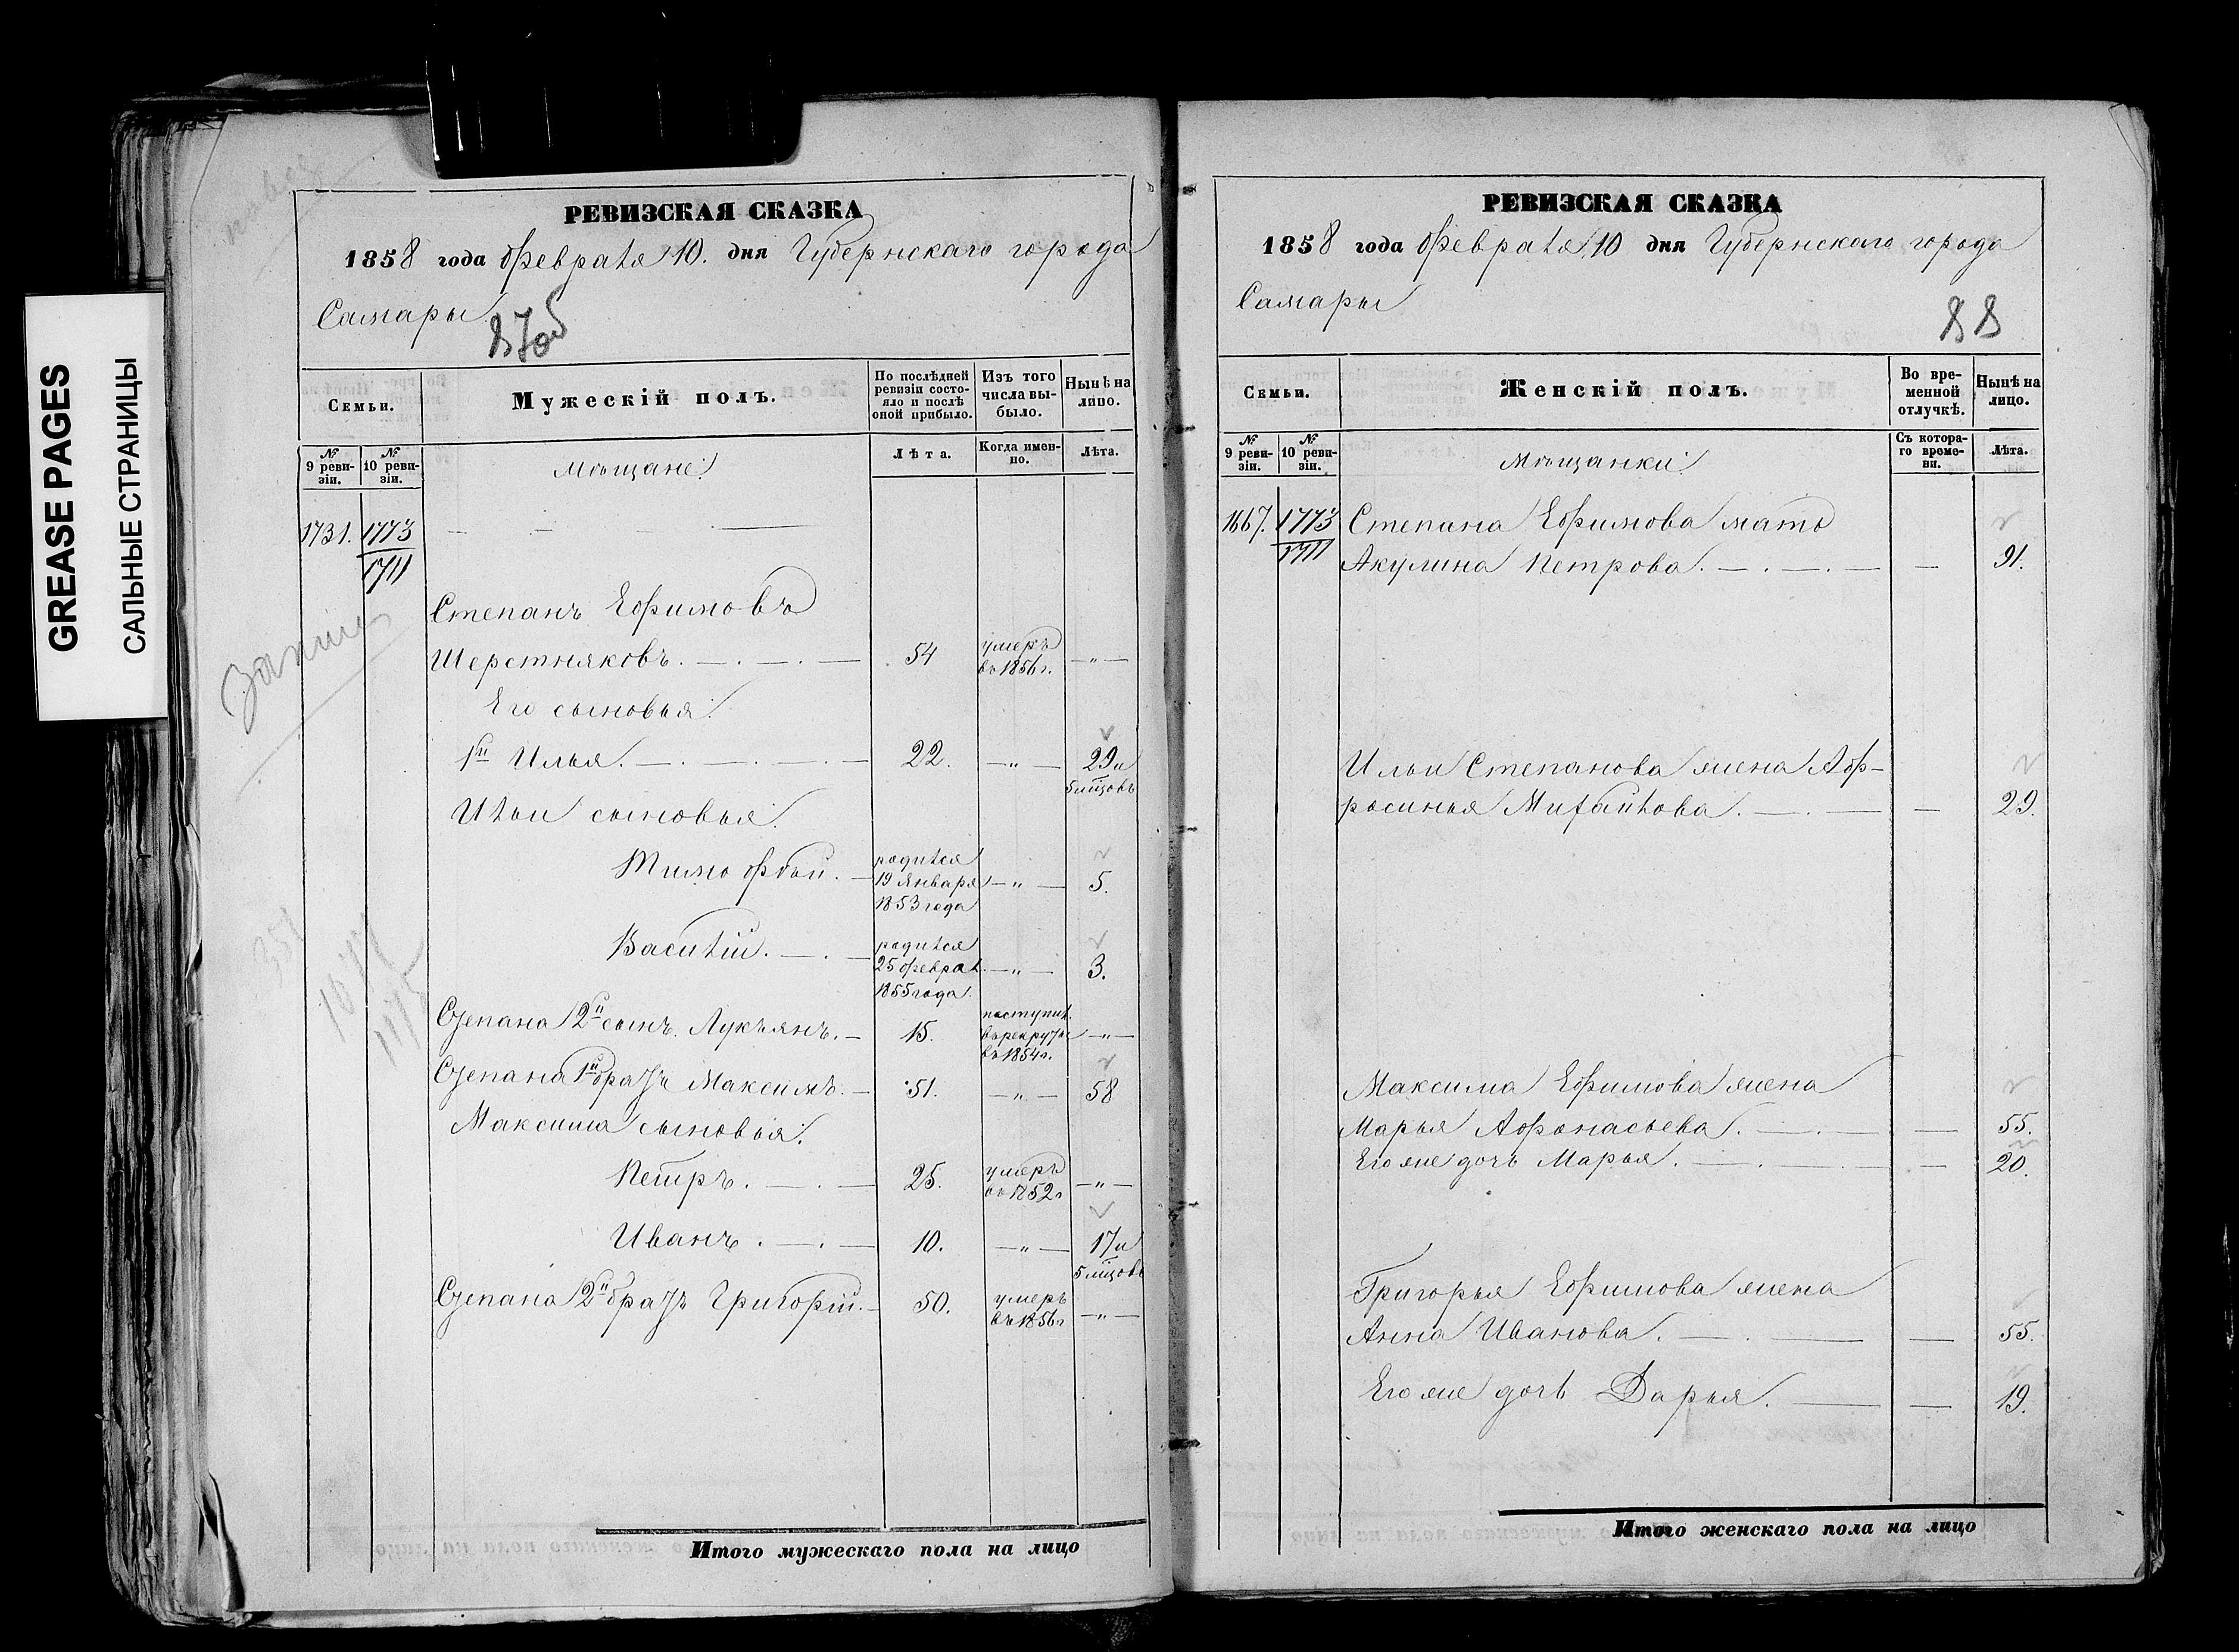 GREASE PAGES
САЛЬНЫЕ СТРАНИЦЫ
РЕВИЗСКАЯ СКАЗКА
1858 года Февраля 10. дня Губернскаго города
Самары
87об
Семьи.
Мужескій полъ.
По послѣдней ревизіи состояло и послѣ оной прибыло.
Изъ того числа выбыло.
Нынѣ на лицо.
№ 9 ревизіи.
№ 10 ревизіи.
Мѣщане:
Лѣта.
Когда именно.
Лѣта.
1731. 1773
1711
Степанъ Ефимовъ
Шерстняковъ. 54 умеръ въ 1856 г. „
Его сыновья:
1й Илья. 22. „ 29 и 5 мѣсцовъ
Ильи сыновья:
Тимофѣй. родился 19 Января 1853 года „ 5.
Василій. родился 25 Феврал. 1855 года. „ 3.
Степана 2й сынъ Лукъянъ. 15. поступил. въ рекруты въ 1854 г. „
Степана 1й братъ Максимъ. 51. „ 58
Максима сыновья:
Петръ. 25. умеръ въ 1852 г „
Иванъ. 10. „ 17 и 5 мѣсцовъ
Степана 2й братъ Григорій. 50. умеръ въ 1856 г „
Итого мужескаго пола на лицо
РЕВИЗСКАЯ СКАЗКА
1858 года Февраля 10 дня Губернскаго города
Самары
88
Семьи.
Женскій полъ.
Во временной отлучкѣ.
Нынѣ на лицо.
№ 9 ревизіи.
№ 10 ревизіи.
Мѣщанки:
Съ котораго времени.
Лѣта.
1667. 1773 Степана Ефимова мать
1711 Акулина Петрова. 91.
Ильи Степанова жена Аф-
росинья Михайлова. 29.
Максима Ефимова жена
Марья Афонасьева. 55.
Его же дочь Марья. 20.
Григорья Ефимова жена
Анна Иванова. 55.
Его же дочь Дарья. 19.
Итого женскаго пола на лицо